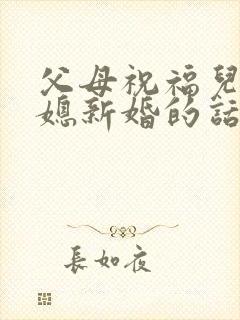 父母祝福兒
媳新婚的話
長如夜